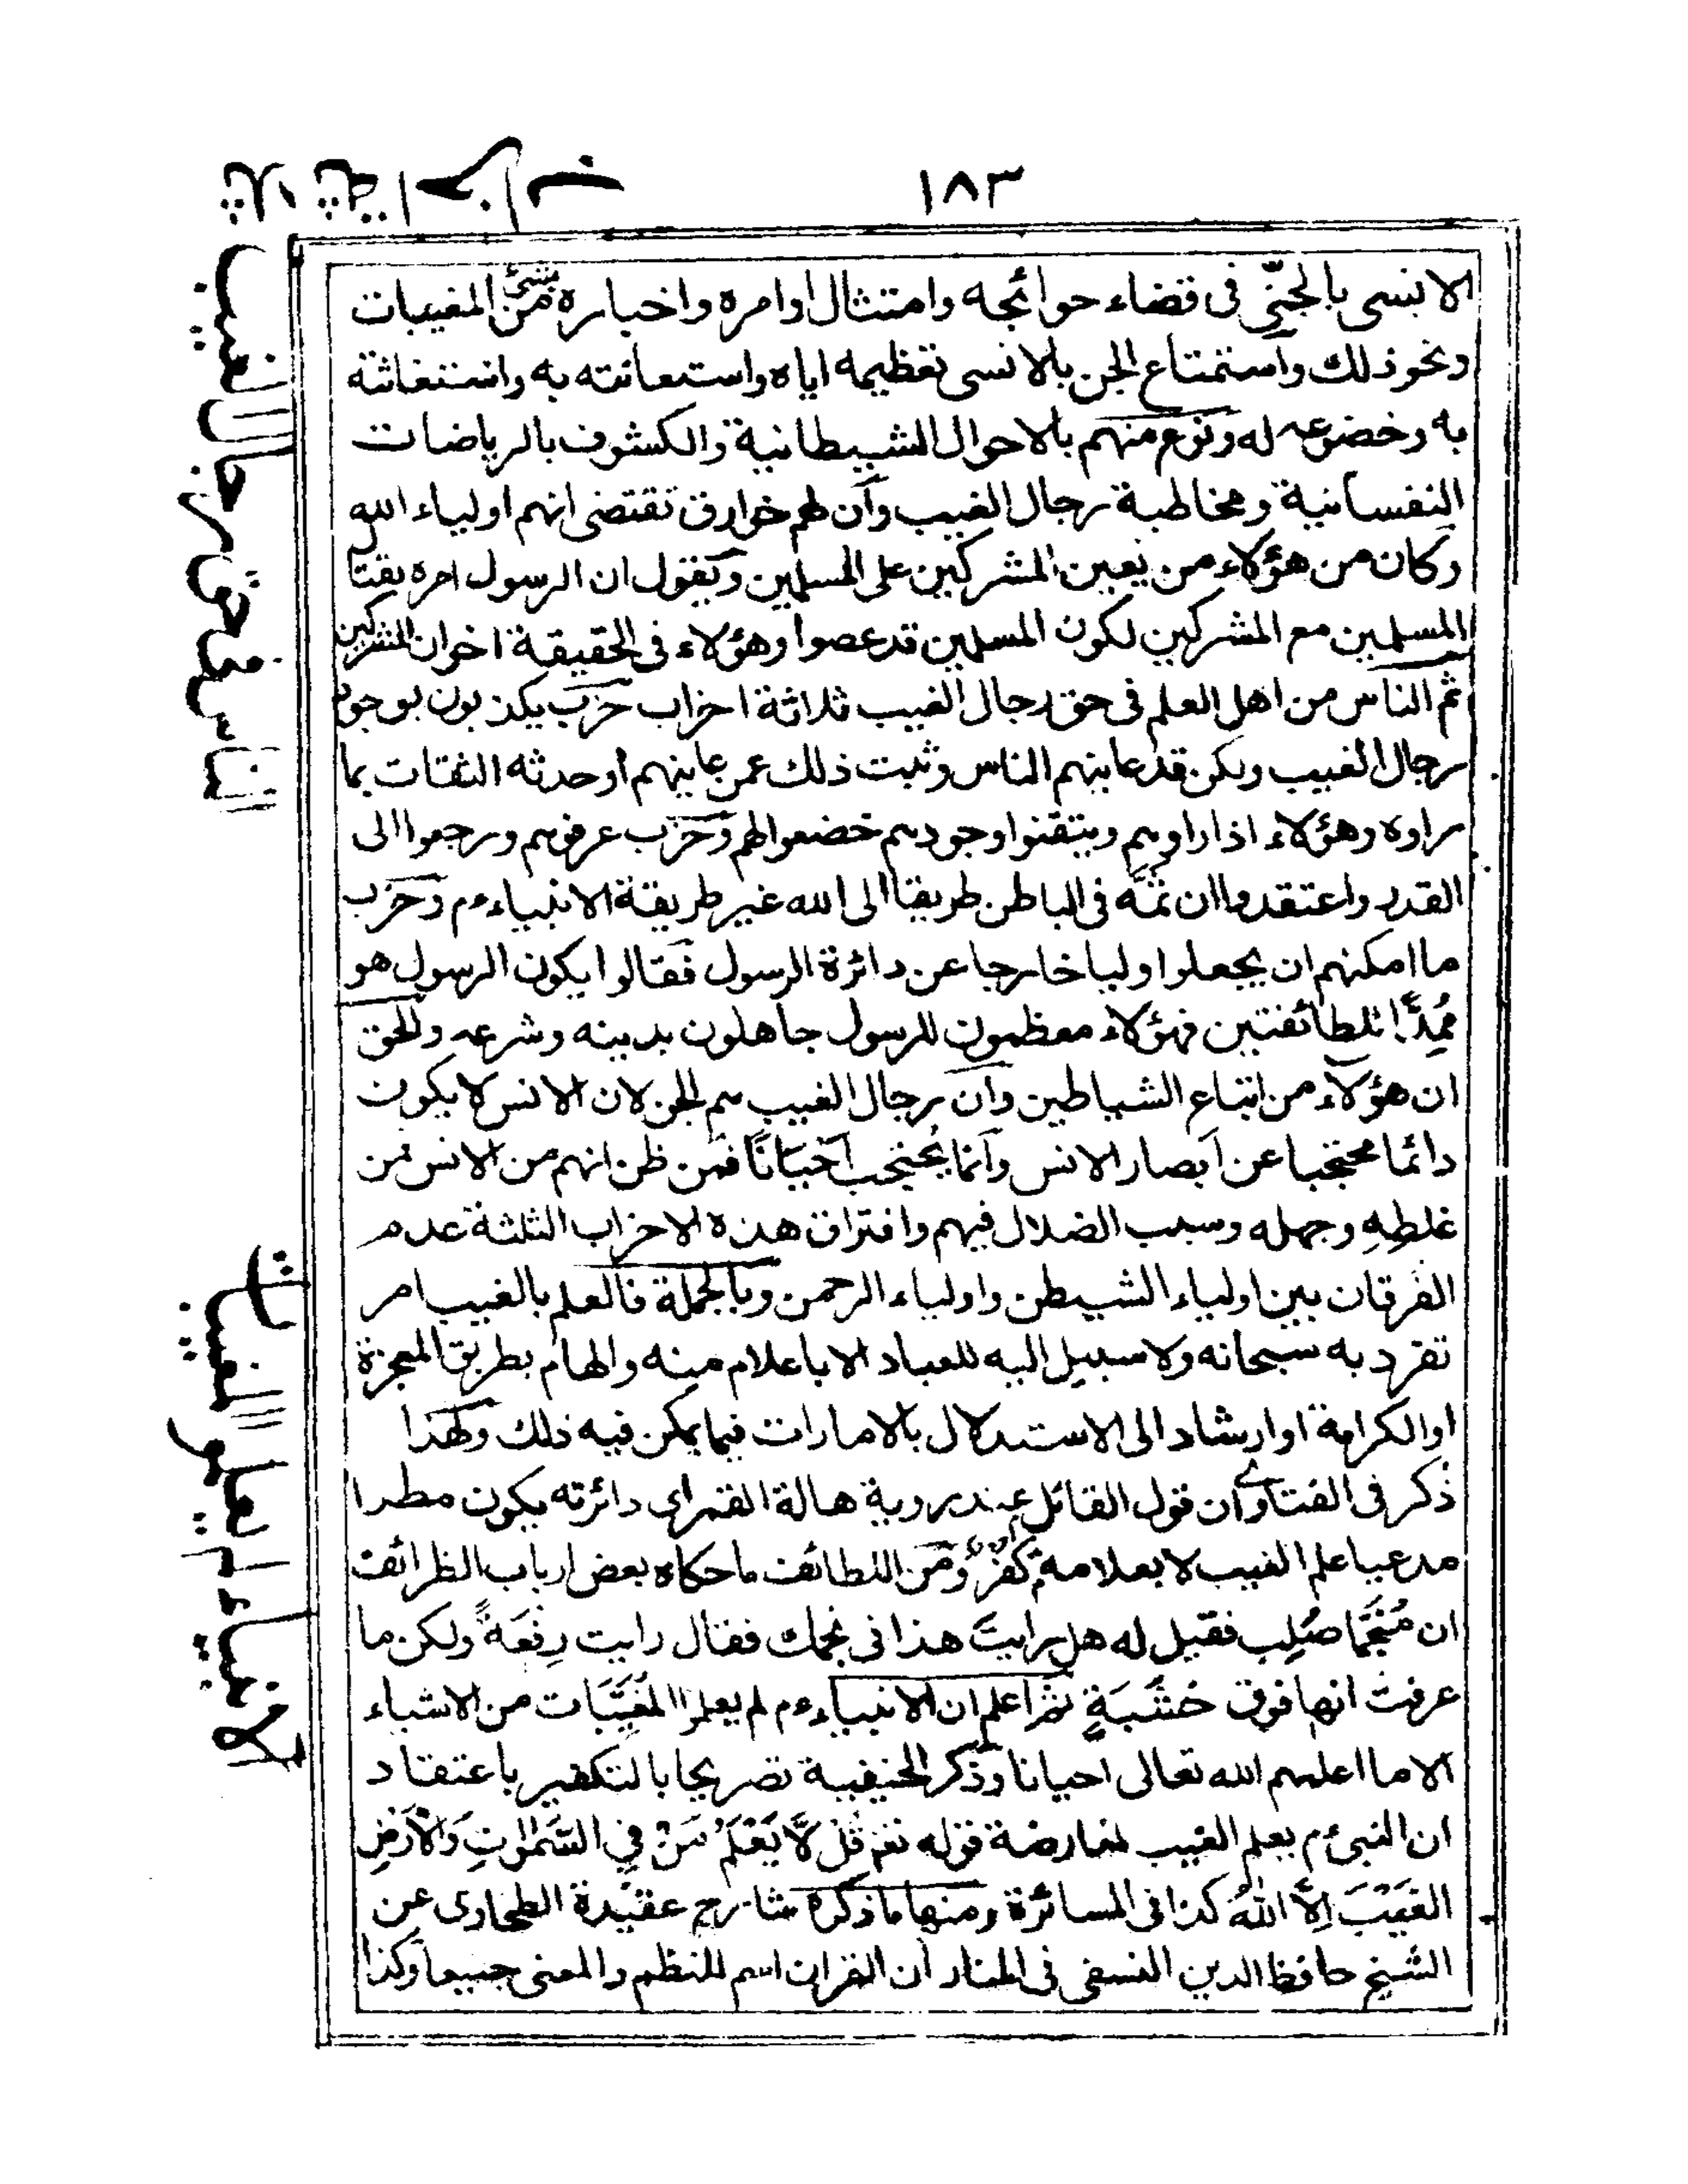 ١٨٣
الانسى بالجنّى فى قضاء حوائجه وامتثال اوامره واخباره بشئ من المغيبات
ونحو ذلك واستمتاع الجن بالانسى تعظيمه اياه واستعانته به واستغاثته
به وخضوعه له ونوع منهم بالاحوال الشيطانية والكشوف بالرياضات
النفسانية ومخاطبة رجال الغيب وان لهم خوارق تقتضى انهم اولياء الله
وكان من هؤلاء من يعين المشركين على المسلمين ويقول ان الرسول امره بقتال
المسلمين مع المشركين لكون المسلمين قد عصوا وهؤلاء فى الحقيقة اخوان المشركين
ثم الناس من اهل العلم فى حق رجال الغيب ثلاثة احزاب حزب يكذبون بوجود
رجال الغيب ولكن قد عاينهم الناس وثبت ذلك عمن عاينهم او حدثه الثقات بما
راوه وهؤلاء اذا راوهم وتيقنوا وجودهم خضعوا لهم وحزب عرفوهم ورجعوا الى
القدر واعتقدوا ان ثمّه فى الباطن طريقا الى الله غير طريقة الانبياء ء م وحزب
ما امكنهم ان يجعلوا وليا خارجا عن دائرة الرسول فقالوا يكون الرسول هو
مُمِدًّا للطائفتين فهؤلاء معظمون للرسول جاهلون بدينه وشرعه والحق
ان هؤلاء من اتباع الشياطين وان رجال الغيب هم الجن لان الانس لا يكون
دائما محتجبا عن ابصار الانس وانما يحتجب احيانًا فمن ظن انهم من الانس فمن
غلطِهِ وجهله وسبب الضلال فيهم وافتراق هذه الاحزاب الثلثة عدم
الفرقان بين اولياء الشيطن واولياء الرحمن وبالجملة فالعلم بالغيب امر
تفرد به سبحانه ولا سبيل اليه للعباد الا باعلام منه والهام بطريق المعجزة
او الكرامة او ارشاد الى الاستدلال بالامارات فيما يمكن فيه ذلك ولهذا
ذكر فى الفتاوى ان قول القائل عند روية هالة القمر اى دائرته يكون مطرا
مدعيا علم الغيب لا بعلامة كفر ومن اللطائف ما حكاه بعض ارباب الظرائف
ان مُنَجِّمًا صُلِب فقيل له هل رايتَ هذا فى نجمك فقال رايت رِفعَةً ولكن ما
عرفت انها فوق خشَبَةٍ ثم اعلم ان الانبياء ء م لم يعلموا المُغَيَّبَات من الاشياء
الا ما اعلمهم الله تعالى احيانا وذكر الحنيفية تصريحا بالتكفير باعتقاد
ان النبى ء م يعلم الغيب لمعارضة قوله تعم قُلْ لَّا يَعْلَمُ مَنْ فِي السَّمٰوٰتِ وَالْاَرْضِ
الغَيْبَ اِلَّا اللّٰهُ كذا فى المسائرة ومنها ما ذكره شارح عقيدة الطحاوى عن
الشيخ حافظ الدين النسفى فى المنار ان القران اسم للنظم والمعنى جميعا وكذا
الناس فى حق رجال الغيب
الانبياء لم يعلموا المغيبات